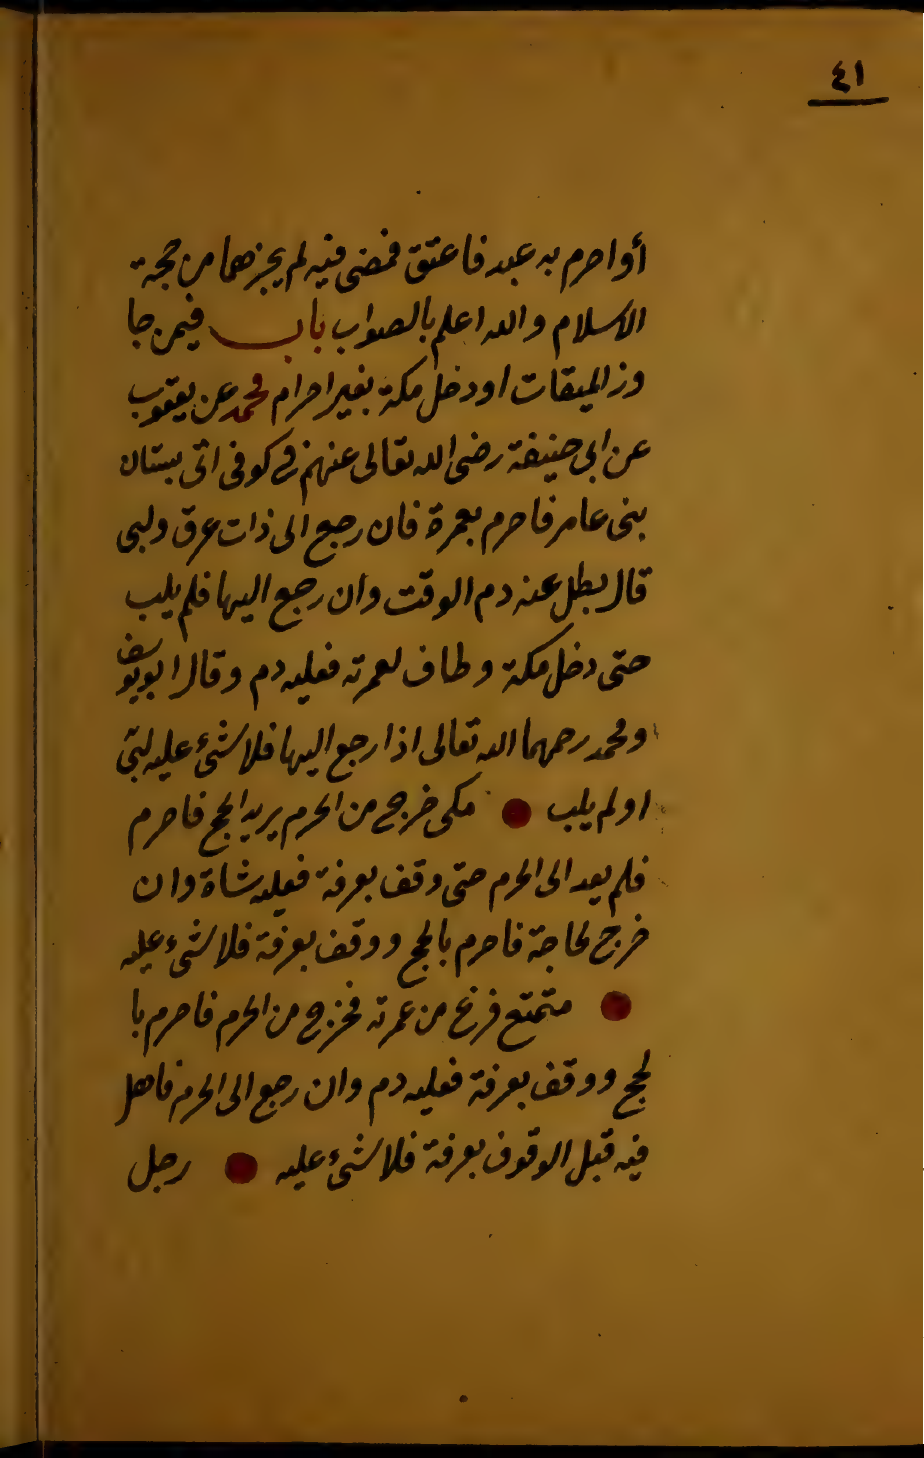 ٤١
أو احرم به عبد فاعتق فمضى فيه لم يجزهما من حجة
الاسلام والله اعلم بالصواب باب فيمن جا
وز الميقات او دخل مكة بغير احرام محمد عن يعقوب
عن ابي حنيفة رضى الله تعالى عنهم في كوفى اتى بستان
بنى عامر فاحرم بعمرة فان رجع الى ذات عرق ولبى
قال بطل عنه دم الوقت وان رجع اليها فلم يلب
حتى دخل مكة وطاف لعمرته فعليه دم وقال ابو يوسف
ومحمد رحمهما الله تعالى اذا رجع اليها فلا شئ عليه لبّى
او لم يلب مكى خرج من الحرم يريد الحج فاحرم
فلم يعد الى الحرم حتى وقف بعرفة فعليه شاة وان
خرج لحاجة فاحرم بالحج ووقف بعرفة فلا شئ عليه
متمتع فرغ من عمرته فخرج من الحرم فاحرم با
لحج ووقف بعرفة فعليه دم وان رجع الى الحرم فاهل
فيه قبل الوقوف بعرفة فلا شئ عليه رجل